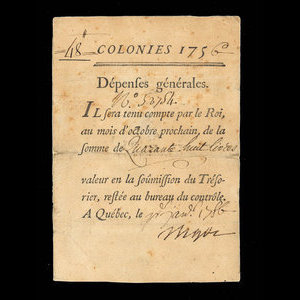 48ᵗᵗ COLONIES 1756
Dépenses générales.
N.º
IL sera tenu compte par le Roi,
au mois d'octobre prochain, de la
somme de Quarante huit livres
valeur en la soûmission du Tréso-
rier, restée au bureau du contrôle.
A Québec, le janv. 1756